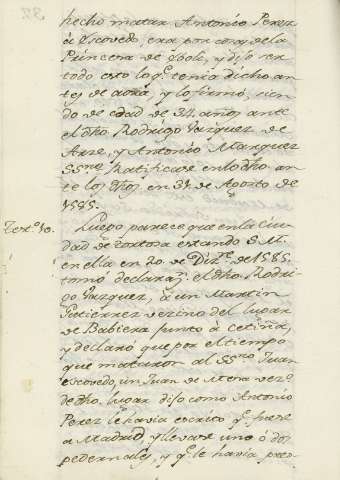 hecho matar Antonio Perez
à Escovedo, era por cosas de la
Princesa de Eboli, y dijo ser
todo esto lo q.e tenia dicho an-
tes de aora, y lo firmó, sien-
do de edad de 34. años ante
el dho. Rodrigo Vazquez de
Arze, y Antonio Marquez
SS.no Ratificase en lo dho. an-
te los dhos. en 31. de Agosto de
1585.
Test.o 10.
Luego parece que en la Ciu-
dad de tortosa estando S. M.
en ella en 20. de Diz.re de 1585.
tomó declaraz.n el dho. Rodri-
go Vazquez, à un Martin
Gutierrez vezino del lugar
de Babiera junto à Cetina,
y declaró que por el tiempo
que mataron al SS.rio Juan
escovedo, un Juan de Mesa vez.o
de dho. lugar dijo como Antonio
Perez le havia escrito q.e fuese
a Madrid, y llevase uno ò dos
pedernales, y q.e le havia pres-